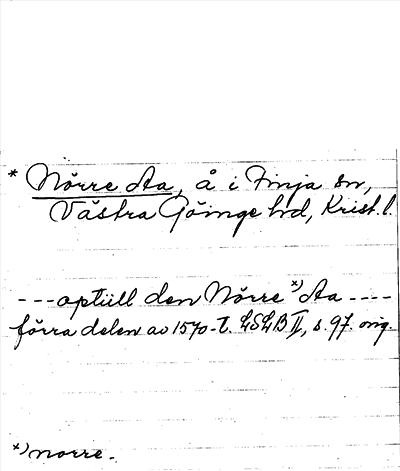 * Nörre Aa, å i Finja sn,
Västra Göinge hd, Krist. l.
---optiill den Nörre *) Aa ----
förra delen av 1570-t. LSLB II, s. 97. orig.
*) norre.